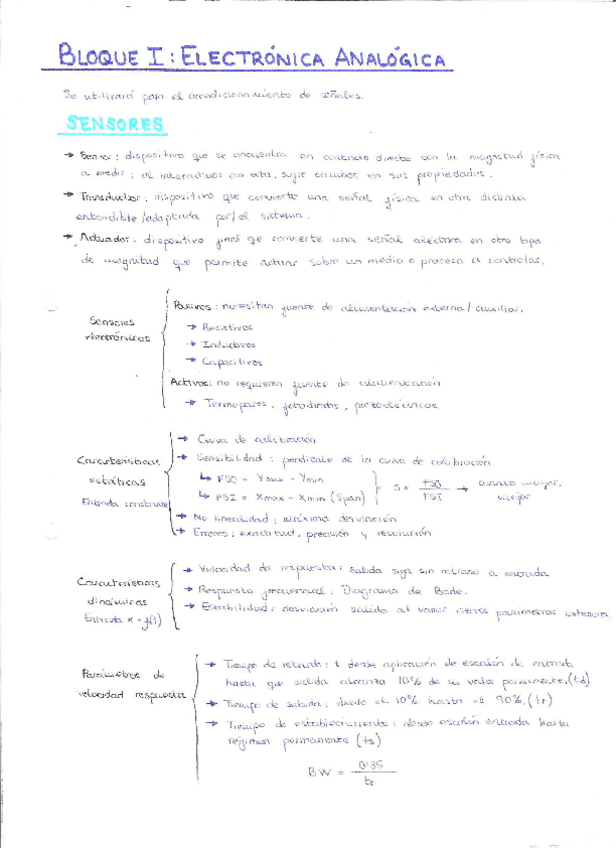 BLOQUE I: ELECTRÓNICA ANALÓGICA
Se utilizará para el acondicionamiento de señales.
SENSORES
→ Sensor: dispositivo que se encuentra en contacto directo con la magnitud física
a medir; al interactuar con esta, sufre cambios en sus propiedades.
→ Transductor: dispositivo que convierte una señal física en otra distinta
entendible/adaptada por/el sistema.
→ Actuador: dispositivo que convierte una señal eléctrica en otro tipo
de magnitud que permite actuar sobre un medio o proceso a controlar.
Sensores
electrónicos
Pasivos: necesitan fuente de alimentación externa/auxiliar.
→ Resistivos
→ Inductivos
→ Capacitivos
Activos: no requieren fuente de alimentación
→ Termopares, fotodiodos, piezoeléctricos
Características
estáticas
Entrada constante
→ Curva de calibración
→ Sensibilidad: pendiente de la curva de calibración
↳ FSO = Ymax - Ymin
↳ FSI = Xmax - Xmin (Span)
S = FSO / FSI → cuanto mayor,
mejor
→ No linealidad: máxima desviación
→ Errores: exactitud, precisión y resolución
Características
dinámicas
Entrada x = f(t)
→ Velocidad de respuesta: salida siga sin retraso a entrada
→ Respuesta frecuencial: Diagrama de Bode.
→ Estabilidad: desviación salida al variar ciertos parámetros exteriores.
Parámetros de
velocidad respuesta
→ Tiempo de retardo: t desde aplicación de escalón de entrada
hasta que salida alcanza 10% de su valor permanente. (td)
→ Tiempo de subida: desde el 10% hasta el 90%. (tr)
→ Tiempo de establecimiento: desde escalón entrada hasta
régimen permanente (ts)
BW = 0'35 / tr